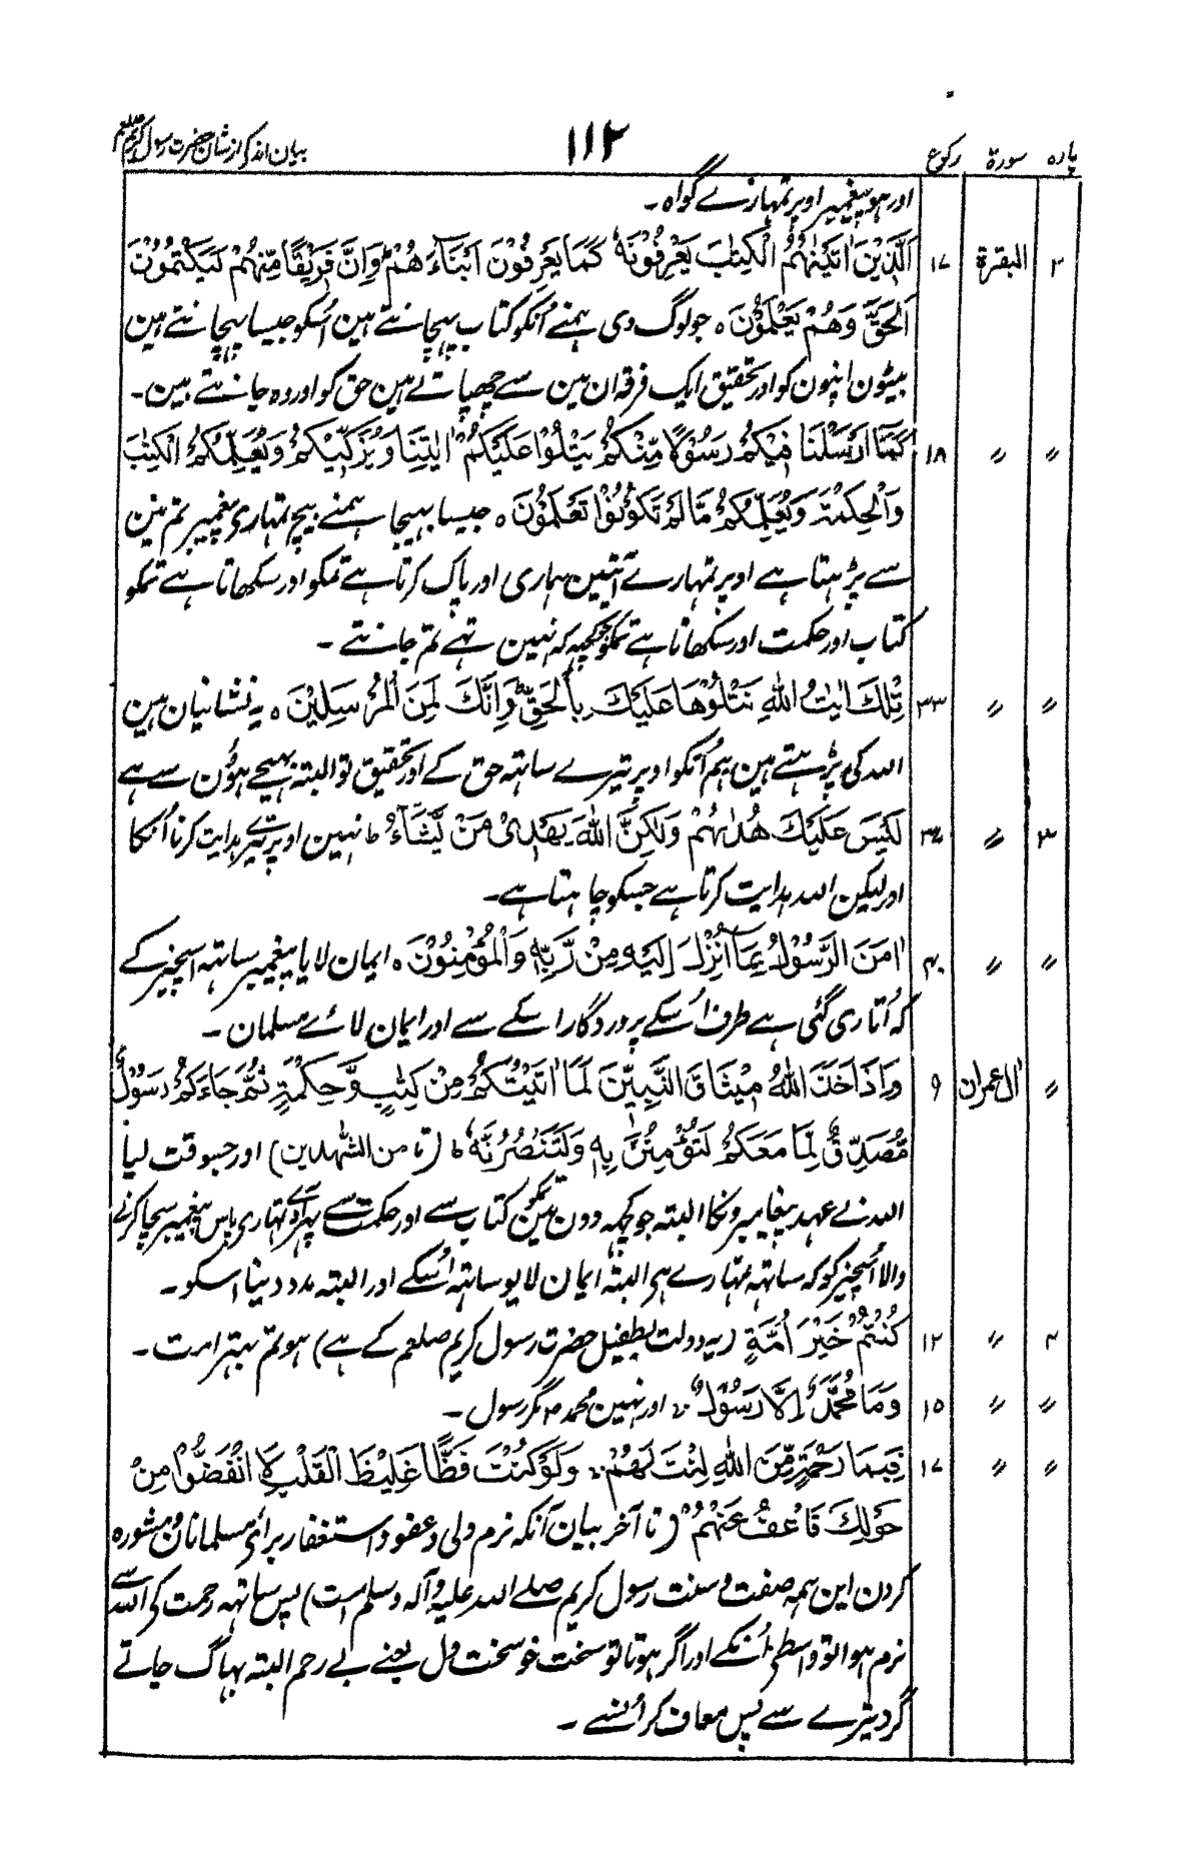 پارہ سورۃ رکوع ۱۱۲ بیان اند کے از شان حضرت رسول کریم صلعم
اور ہو پیغمبر اوپر تمہارے گواہ ۔
۲ البقرۃ ۱۷ اَلَّذِیْنَ اٰتَیْنٰهُمُ الْکِتٰبَ یَعْرِفُوْنَهٗ کَمَا یَعْرِفُوْنَ اَبْنَآءَهُمْ وَاِنَّ فَرِیْقًا مِّنْهُمْ لَیَکْتُمُوْنَ
الْحَقَّ وَهُمْ یَعْلَمُوْنَ ہ جو لوگ دی ہمنے اُنکو کتاب پہچانتے ہین اُسکو جیسا پہچانتے ہین
بیٹون اپنون کو اور تحقیق ایک فرقہ ان مین سے چھپاتے ہین حق کو اور وہ جانتے ہین ۔
〃 〃 ۱۸ کَمَآ اَرْسَلْنَا فِیْکُمْ رَسُوْلًا مِّنْکُمْ یَتْلُوْا عَلَیْکُمْ اٰیٰتِنَا وَیُزَکِّیْکُمْ وَیُعَلِّمُکُمُ الْکِتٰبَ
وَالْحِکْمَةَ وَیُعَلِّمُکُمْ مَّا لَمْ تَکُوْنُوْا تَعْلَمُوْنَ ہ جیسا بہیجا ہمنے بیچ تمہاری پیغمبر تم مین
سے پڑہتا ہے اوپر تمہارے آیتین ہماری اور پاک کرتا ہے تمکو اور سکھاتا ہے تمکو
کتاب اور حکمت اور سکھاتا ہے تمکو جوکچہہ کہ نہین تہے تم جانتے ۔
〃 〃 ۳۳ تِلْکَ اٰیٰتُ اللّٰهِ نَتْلُوْهَا عَلَیْکَ بِالْحَقِّ وَاِنَّکَ لَمِنَ الْمُرْسَلِیْنَ ہ یہ نشانیان ہین
اللہ کی پڑہتے ہین ہم اُنکو اوپر تیرے ساتہہ حق کے اور تحقیق تو البتہ بہیجے ہوؤن سے ہے
۳ 〃 ۳۷ لَیْسَ عَلَیْکَ هُدٰىهُمْ وَلٰکِنَّ اللّٰهَ یَهْدِیْ مَنْ یَّشَآءُ ط نہین اوپر تیرے ہدایت کرنا اُنکا
اور لیکن اللہ ہدایت کرتا ہے جسکو چاہتا ہے ۔
〃 〃 ۴۰ اٰمَنَ الرَّسُوْلُ بِمَآ اُنْزِلَ اِلَیْهِ مِنْ رَّبِّهٖ وَالْمُؤْمِنُوْنَ ہ ایمان لایا پیغمبر ساتہہ اسچیز کے
کہ اُتاری گئی ہے طرف اُسکے پروردگار اسکے سے اور ایمان لائے مسلمان ۔
〃 اٰل عمران ۹ وَاِذْ اَخَذَ اللّٰهُ مِیْثَاقَ النَّبِیّٖنَ لَمَآ اٰتَیْتُکُمْ مِّنْ کِتٰبٍ وَّحِکْمَةٍ ثُمَّ جَآءَکُمْ رَسُوْلٌ
مُّصَدِّقٌ لِّمَا مَعَکُمْ لَتُؤْمِنُنَّ بِهٖ وَلَتَنْصُرُنَّهٗ ط (تا من الشّٰهدین) اور جسوقت لیا
اللہ نے عہد پیغامبرونکا البتہ جو کچہہ دون مین تمکو کتاب سے اور حکمت سے پہر آوے تمہاری پاس پیغمبر سچا کرنے
والا اُسچیز کو کہ ساتہہ تمہارے ہی البتہ ایمان لایو ساتہہ اُسکے اور البتہ مدد دینا اسکو ۔
۴ 〃 ۱۲ کُنْتُمْ خَیْرَ اُمَّةٍ (یہ دولت بطفیل حضرت رسول کریم صلعم کے ہے) ہو تم بہتر امت ۔
〃 〃 ۱۵ وَمَا مُحَمَّدٌ اِلَّا رَسُوْلٌ ؞ اور نہین محمد مگر رسول ۔
〃 〃 ۱۷ فَبِمَا رَحْمَةٍ مِّنَ اللّٰهِ لِنْتَ لَهُمْ ؞ وَلَوْ کُنْتَ فَظًّا غَلِیْظَ الْقَلْبِ لَا انْفَضُّوْا مِنْ
حَوْلِکَ فَاعْفُ عَنْهُمْ (تا آخر بیان آنکہ نرم دلی و عفو و استغفار برائے مسلمانان و مشورہ
کردن این ہمہ صفت و سنت رسول کریم صلے اللہ علیہ وآلہ وسلم است) پس ساتہہ رحمت کی اللہ سے
نرم ہوا تو واسطے اُنکے اور اگر ہوتا تو سخت خو سخت دل یعنے بے رحم البتہ بہاگ جاتے
گرد تیرے سے پس معاف کر اُنسے ۔